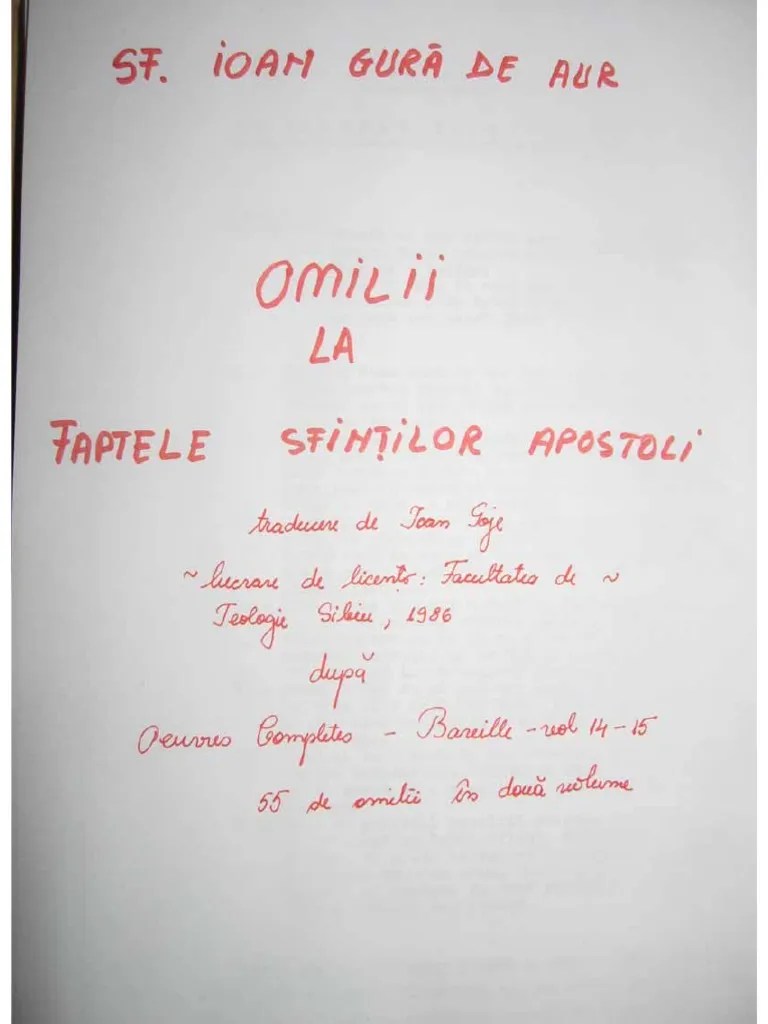 SF. IOAN GURĂ DE AUR
OMILII
LA
FAPTELE SFINȚILOR APOSTOLI
traducere de Ioan Goje
~ lucrare de licență: Facultatea de ~
Teologie Sibiu, 1986
după
Oeuvres Completes - Bareille - vol 14-15
55 de omilii în două volume